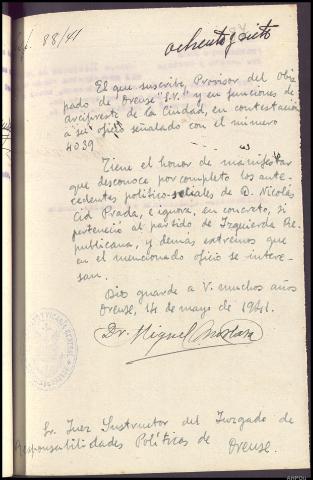 88/41
ochenta y ocho
El que suscribe, Provisor del Obis
pado de Orense "S.V." y en funciones de
Arcipreste de la Ciudad, en contestación
a su oficio señalado con el número
4039
Tiene el honor de manifestar
que desconoce por completo los ante-
cedentes político-sociales de D. Nicolás
Cid Prada, e ignora, en concreto, si
perteneció al partido de Izquierda Re-
publicana, y demás extremos que
en el mencionado oficio se intere-
san.
Dios guarde a V. muchos años
Orense, 14 de mayo de 1941.
Dr. Miguel
Sr. Juez Instructor del Juzgado de
Responsabilidades Políticas de Orense.